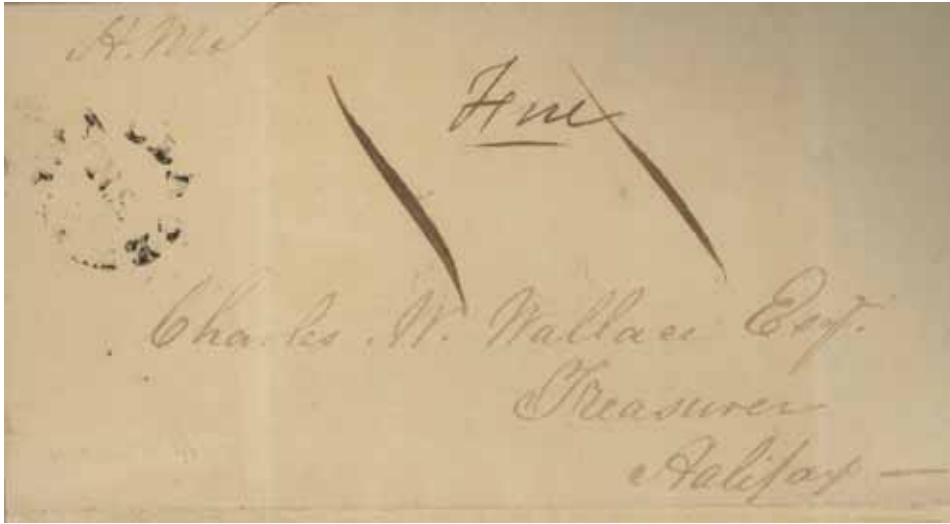 H.M.S
Free
Charles W. Wallace Esqr.
Treasurer
Halifax —